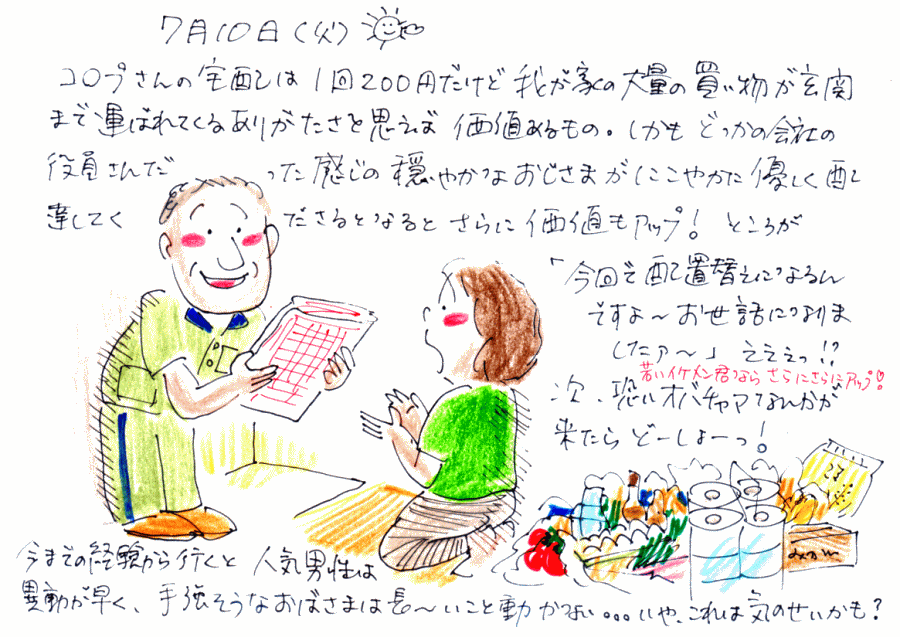 7月10日(火)
コロプさんの宅配は1回200円だけど我が家の大量の買い物が玄関
まで運ばれてくるありがたさと思えば価値あるもの。しかもどっかの会社の
役員さんだった感じの穏やかなおじさまがにこやかに優しく配
達してくださるとなるとさらに価値もアップ!ところが
「今回で配置替えになるん
ですよ〜お世話になりま
したァ〜」えええっ!?
若いイケメン君ならさらにさらにアップ♡
次、恐いオバチャマなんかが
来たらどーしよーっ!
みかん
今までの経験から行くと人気男性は
異動が早く、手強そうなおばさまは長〜いこと動かない…いや、これは気のせいかも?